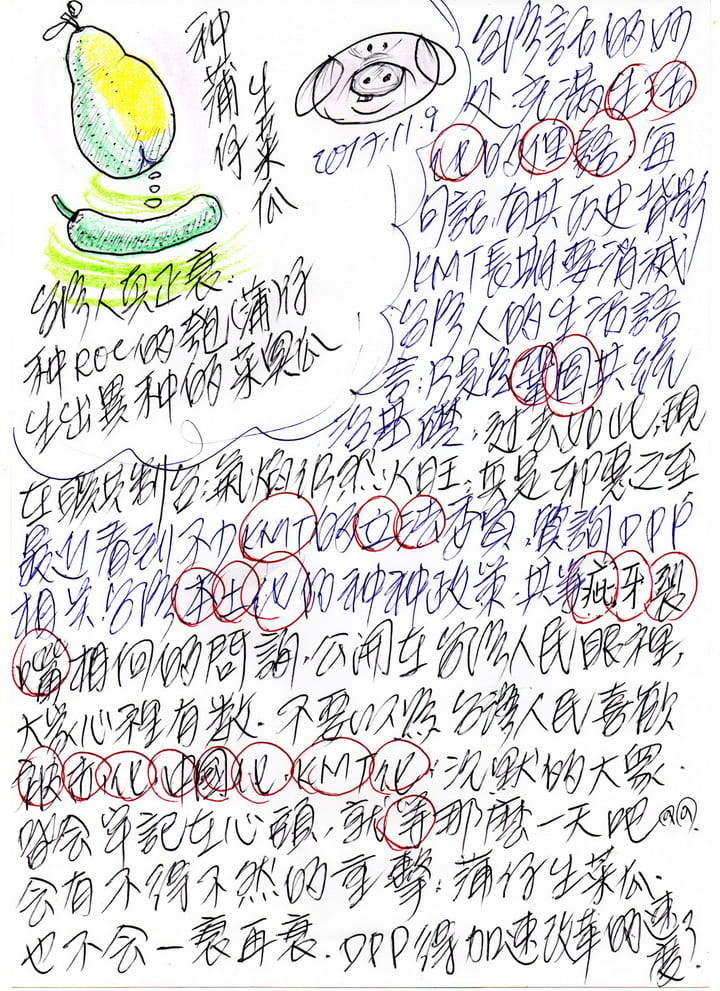 种蒲仔
生菜瓜
2017.11.9
台灣人真正衰.
种ROC的匏(蒲)仔
生出異种的菜瓜
台灣話的妙
处.充滿生活
化的俚語.每
句話,有其历史背影
KMT長期要消滅
台灣人的生活語
言.乃是為鞏固其統
治基礎.過去如此,現
在 气焰仍然火旺.真是邪惡之至
最近看到不少KMT的立法委員.質詢DPP
相关台灣本土化的种种政策.其 疵牙裂
嘴相向的問詢.公開在台灣人民眼裡,
大家心裡有数.不要以為台灣人民喜歡
被赤化中國化.KMT化.沉默的大眾.
皆会牢記在心頭,就等那麼一天吧@@.
会有不得不然的重擊.蒲仔生菜瓜.
也不会一衰再衰.DPP得加速改革的速度了.